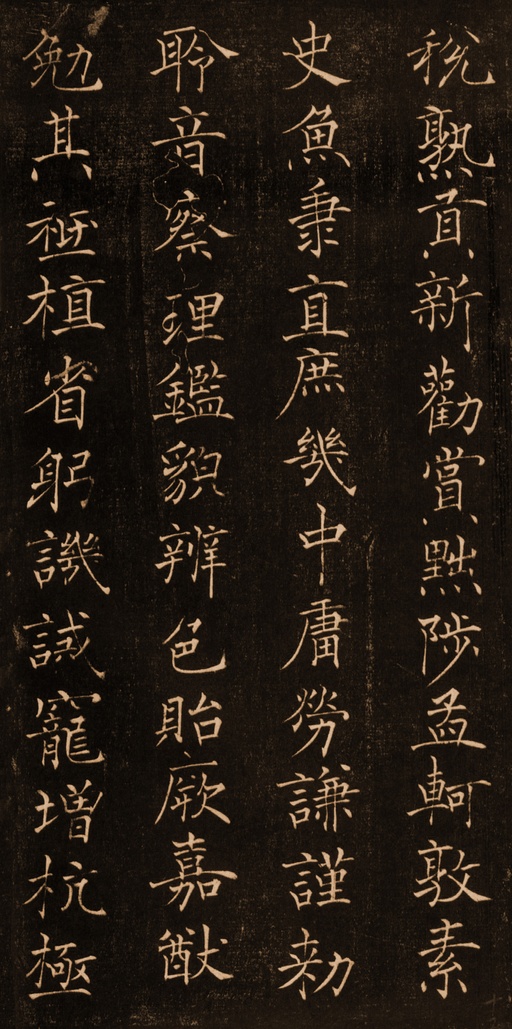 稅熟貢新勸賞黜陟孟軻敦素
史魚秉直庶幾中庸勞謙謹勑
聆音察理鑑貌辨色貽厥嘉猷
勉其祗植省躬譏誡寵增抗極